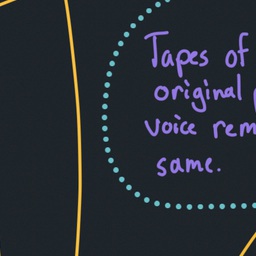 Tapes of
original
voice rem
same.